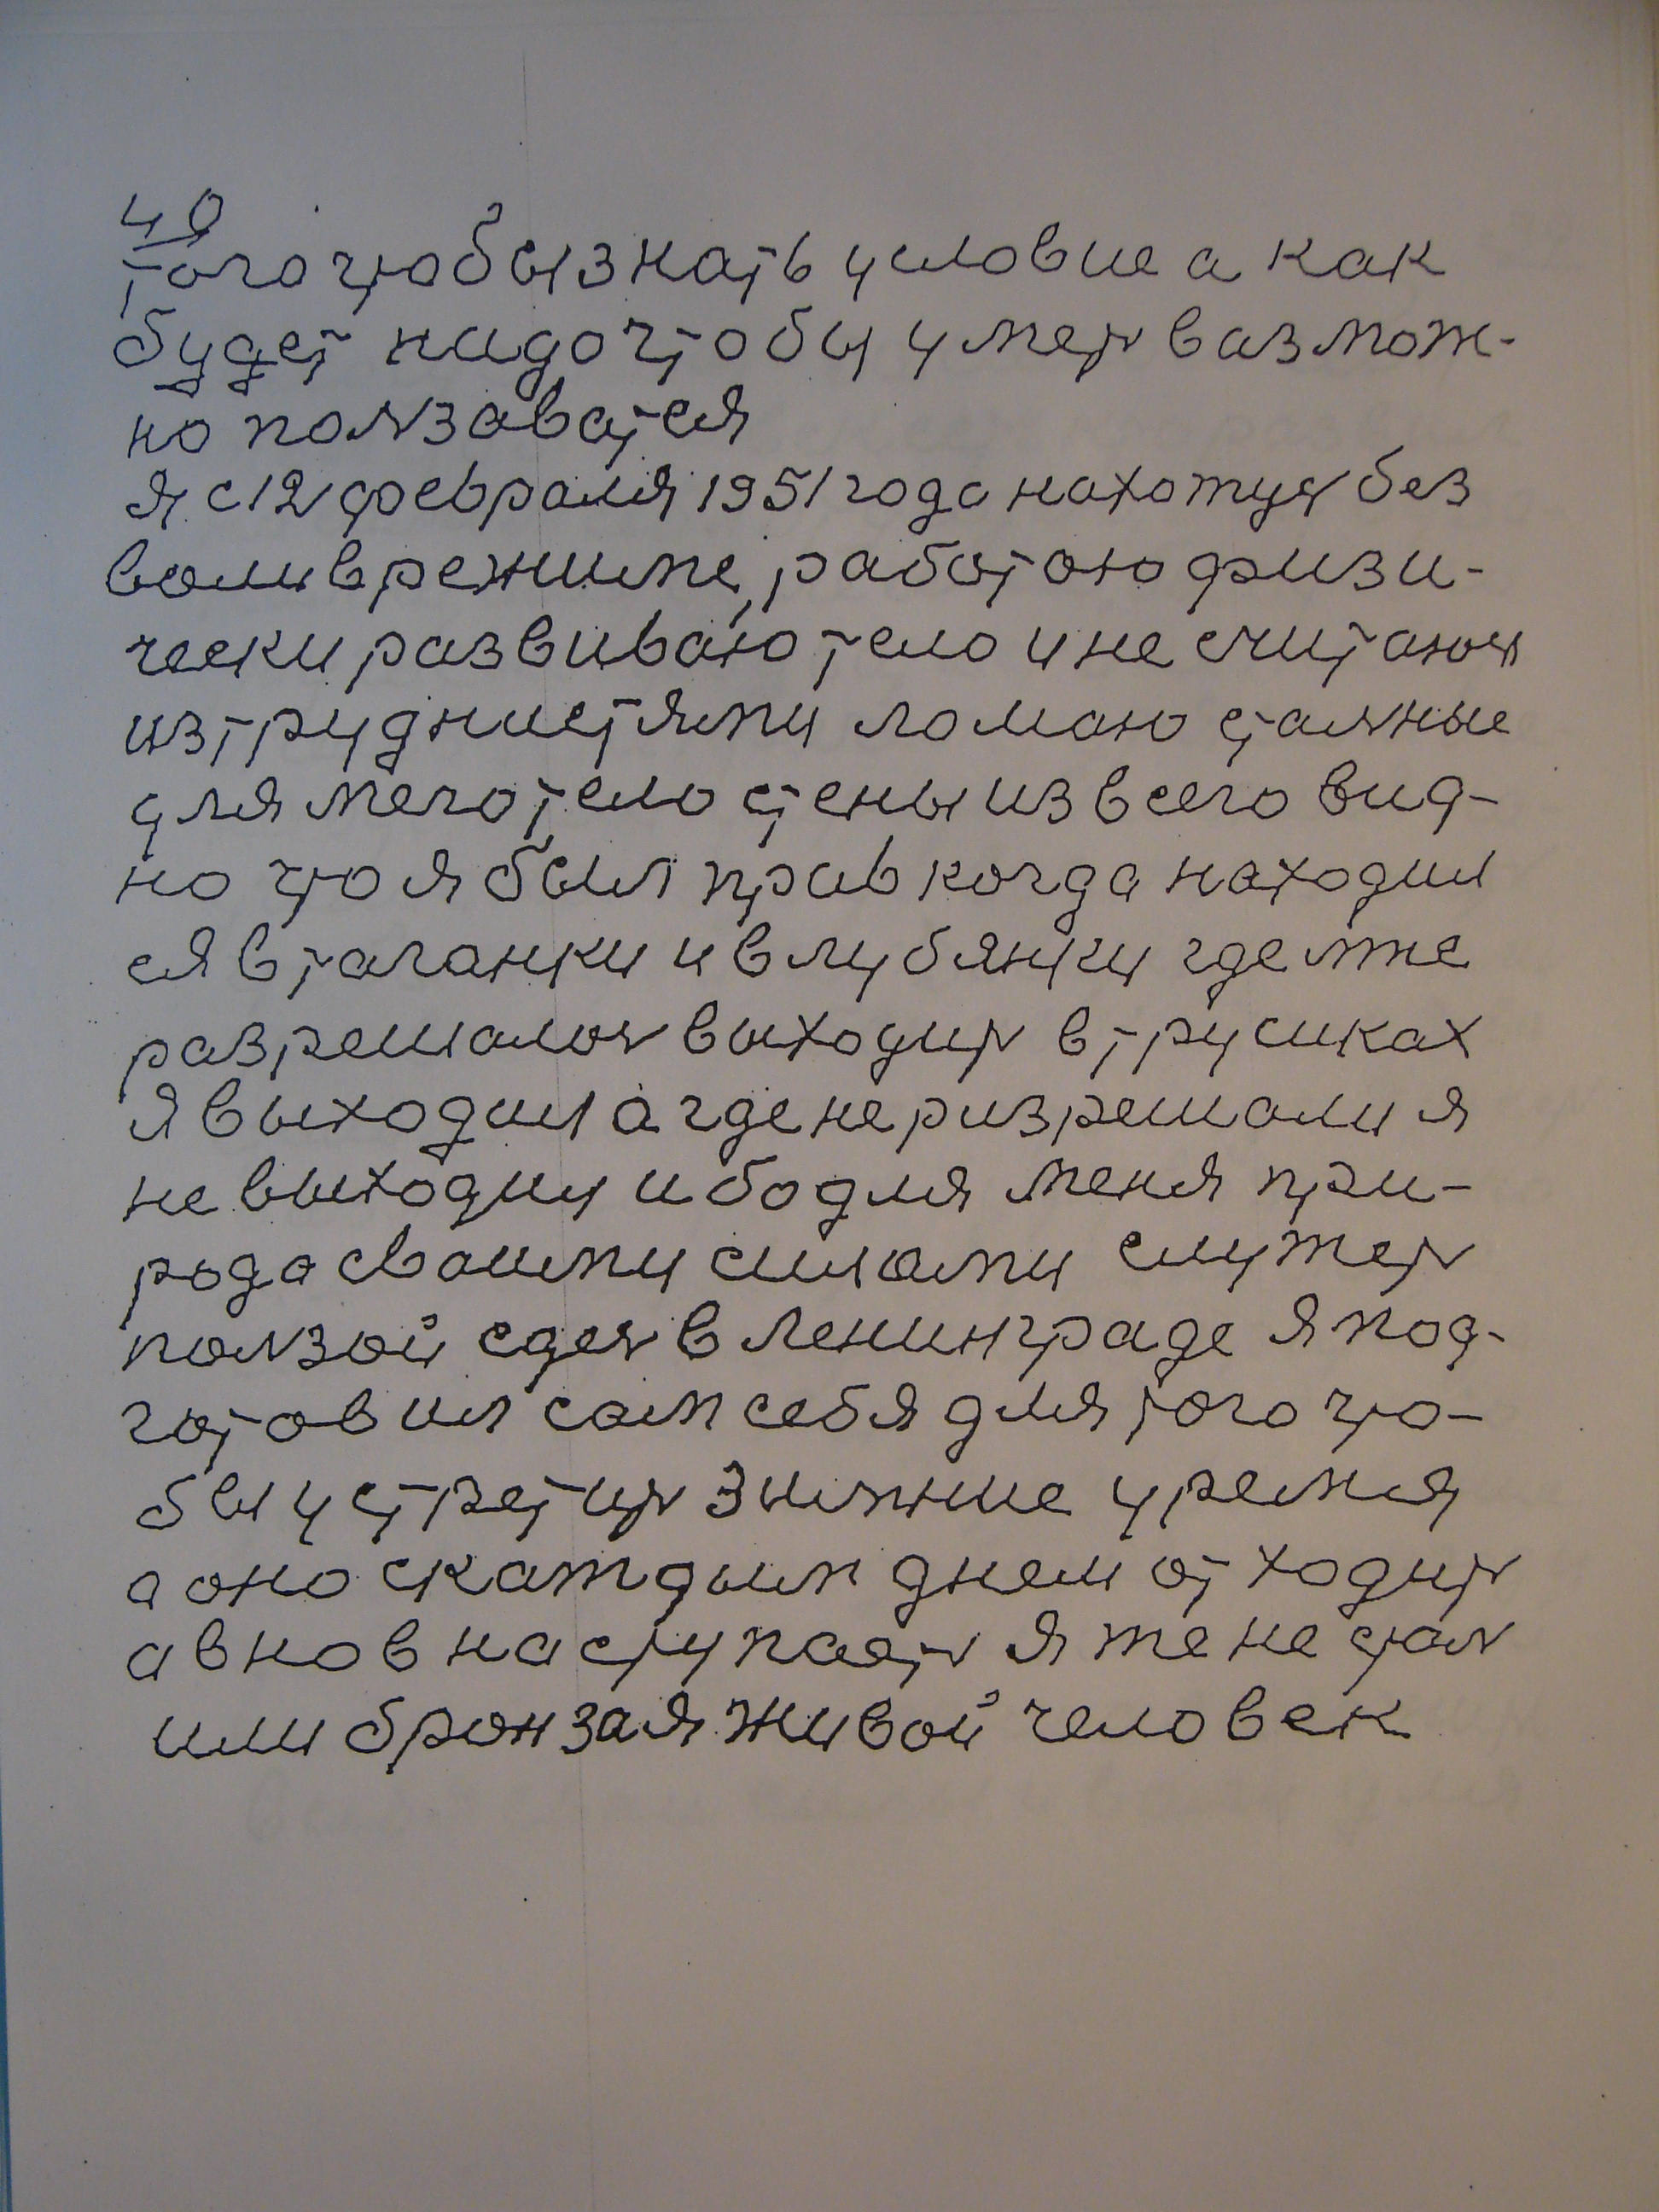 40
того чтобы знать условие а как
будет надо чтобы умет вазмож-
но ползаватся
я с 12 февраля 1951 года нахожус без
воли в режиме, работаю физи-
чески развиваю тело и не считаюс
из трудностями ломаю сталные
для моего тело стены из всего вид-
но что я был прав когда находил
ся в таганки и в лубянки где мне
разрешалос выходит в трусиках
я выходил а где не разрешали я
не выходил ибо для меня при-
рода своими силами служет
ползой сдес в Ленинграде я под-
готовил сам себя для того что-
бы устретит зимние уремя
а оно с каждым днем отходит
а внов наступает я же не стал
или бронза я живой человек